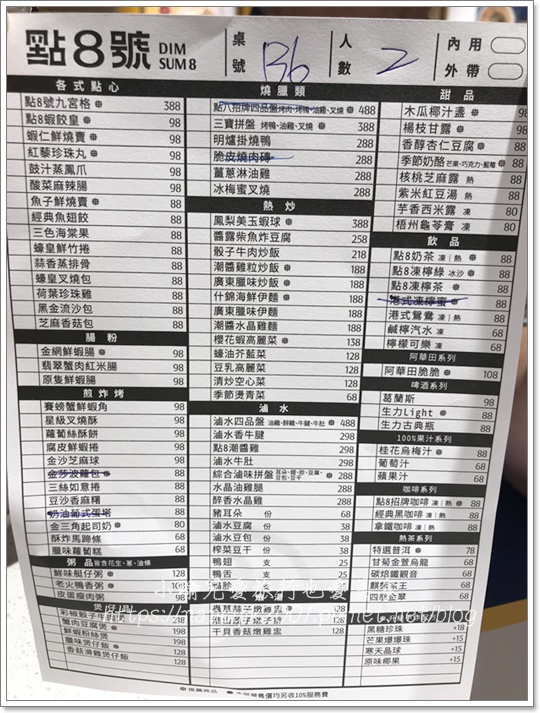 點8號 DIM SUM8
桌號 B6
人數 2
內用
外帶
各式點心
點8號九宮格 388
點8蝦餃皇 98
蝦仁鮮燒賣 88
紅藜珍珠丸 98
豉汁蒸鳳爪 88
酸菜麻辣腸 88
魚子鮮燒賣 88
經典魚翅餃 88
三色海棠果 88
蠔皇鮮竹捲 88
蒜香蒸排骨 88
蠔皇叉燒包 88
荷葉珍珠雞 88
黑金流沙包 88
芝麻香菇包 88
腸粉
金網鮮蝦腸 98
翡翠蟹肉紅米腸 98
原隻鮮蝦腸 98
煎炸烤
賽螃蟹鮮蝦角 98
星級叉燒酥 98
蘿蔔絲酥餅 98
腐皮鮮蝦捲 98
金沙芝麻球 98
金莎波蘿包 88
三絲如意捲 88
豆沙香麻糬 88
奶油葡式蛋塔 88
金三角起司奶 80
酥炸馬蹄條 68
臘味蘿蔔糕 68
粥品 皆含花生、蔥、油條
鮮味艇仔粥 128
老火鴨香粥 108
皮蛋瘦肉粥
煲
彩椒骰子
蟹肉豆腐煲 218
鮮蝦粉絲煲 198
臘味煲仔飯 128
香菇滑雞煲仔飯 128
燒臘類
點八招牌四品盤 烤肉、烤鴨、油雞、叉燒 488
三寶拼盤 烤鴨、油雞、叉燒 388
明爐掛燒鴨 288
脆皮燒肉磚 288
薑蔥淋油雞 288
冰梅蜜叉燒 288
熱炒
鳳梨美玉蝦球 388
醬露柴魚炸豆腐 258
骰子牛肉炒飯 218
潮醬雞粒炒飯 188
廣東臘味炒飯 188
什錦海鮮伊麵 188
廣東臘味伊麵 188
潮醬水晶雞麵 188
櫻花蝦高麗菜 138
蠔油芥藍菜 128
豆乳高麗菜 128
清炒空心菜 128
季節燙青菜 88
滷水
滷水四品盤 油雞、醉雞、牛腱、牛肚 488
滷水香牛腱 298
點8潮醬雞 298
滷水牛肚 298
綜合滷味拼盤 288
水晶油雞腿 288
醉香水晶雞 288
豬耳朵 份 68
滷水豆腐 份 58
滷水豆包 份 58
榨菜豆干 份 58
鴨翅 支 25
鴨舌 支 25
干貝香菇燉雞盅 128
甜品
木瓜椰汁盞 98
楊枝甘露 98
香醇杏仁豆腐 88
季節奶酪 芒果、巧克力、藍莓 88
核桃芝麻露 熱 88
紫米紅豆湯 熱 88
芋香西米露 凍 80
梧州龜苓膏 凍 80
飲品
點8奶茶 凍|熱 88
點8凍檸綠 冰沙 88
點8凍檸茶 88
港式凍檸蜜 88
港式鴛鴦 凍|熱 88
鹹檸汽水 凍 68
檸檬可樂 凍 68
阿華田系列
阿華田脆脆 108
啤酒系列
葛蘭斯 98
生力Light 88
生力古典瓶 88
100%果汁系列
桂花烏梅汁 88
葡萄汁 88
蘋果汁 88
咖啡系列
點8招牌咖啡 凍|熱 88
經典黑咖啡 凍|熱 88
拿鐵咖啡 凍|熱 88
熱茶系列
特選普洱 78
甘菊金萱烏龍 68
碳焙鐵觀音 68
四季金翠 68
黑糖珍珠 +15
芒果爆爆珠 +15
寒天晶球 +15
原味椰果 +15
推薦商品
本單售價均另收10%服務費